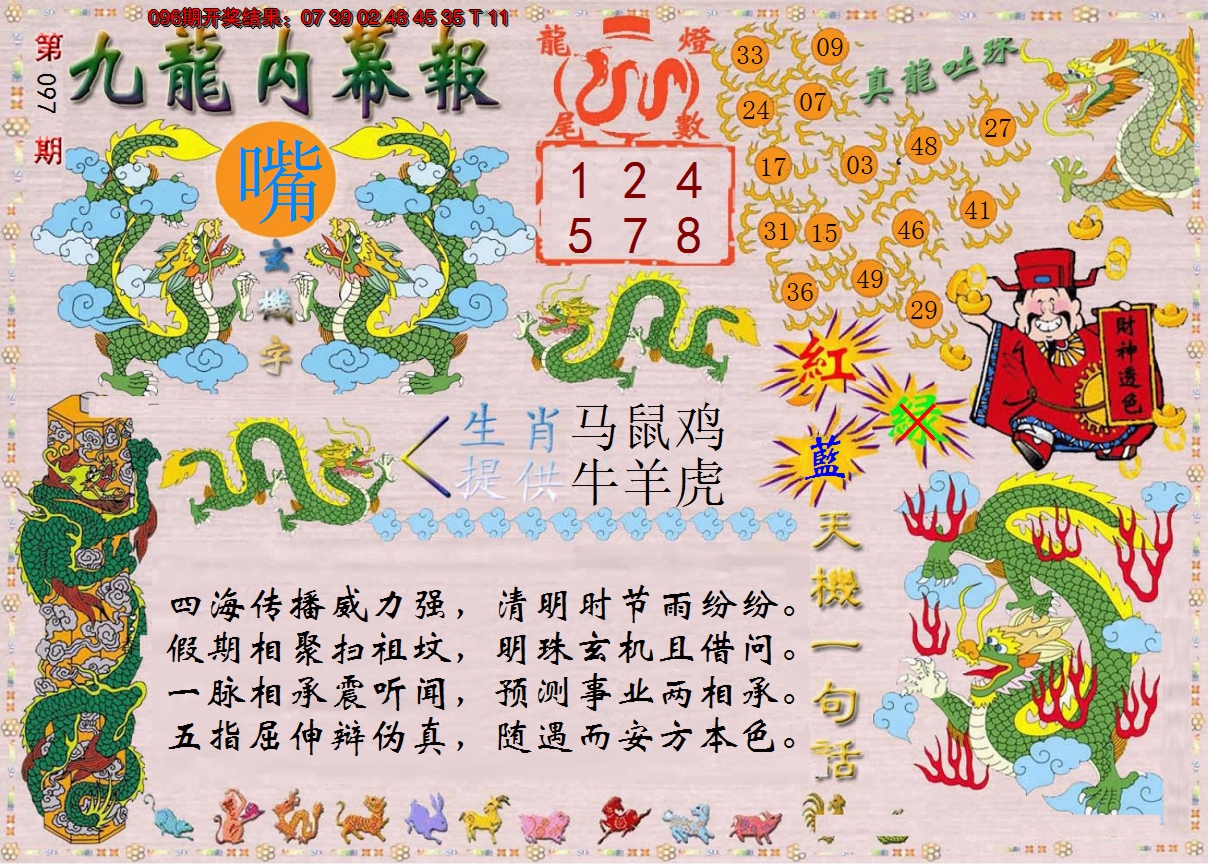 096期开奖结果：07 39 02 48 45 35 T 11
第097期
九龍内幕報
嘴
玄機字
龍燈
尾數
1 2 4
5 7 8
真龍吐珠
33 09
24 07
48 27
17 03
41
31 15 46
36 49
29
財神透色
紅
绿
藍
生肖 马鼠鸡
提供 牛羊虎
天機一句话
四海传播威力强，清明时节雨纷纷。
假期相聚扫祖坟，明珠玄机且借问。
一脉相承震听闻，预测事业两相承。
五指屈伸辩伪真，随遇而安方本色。